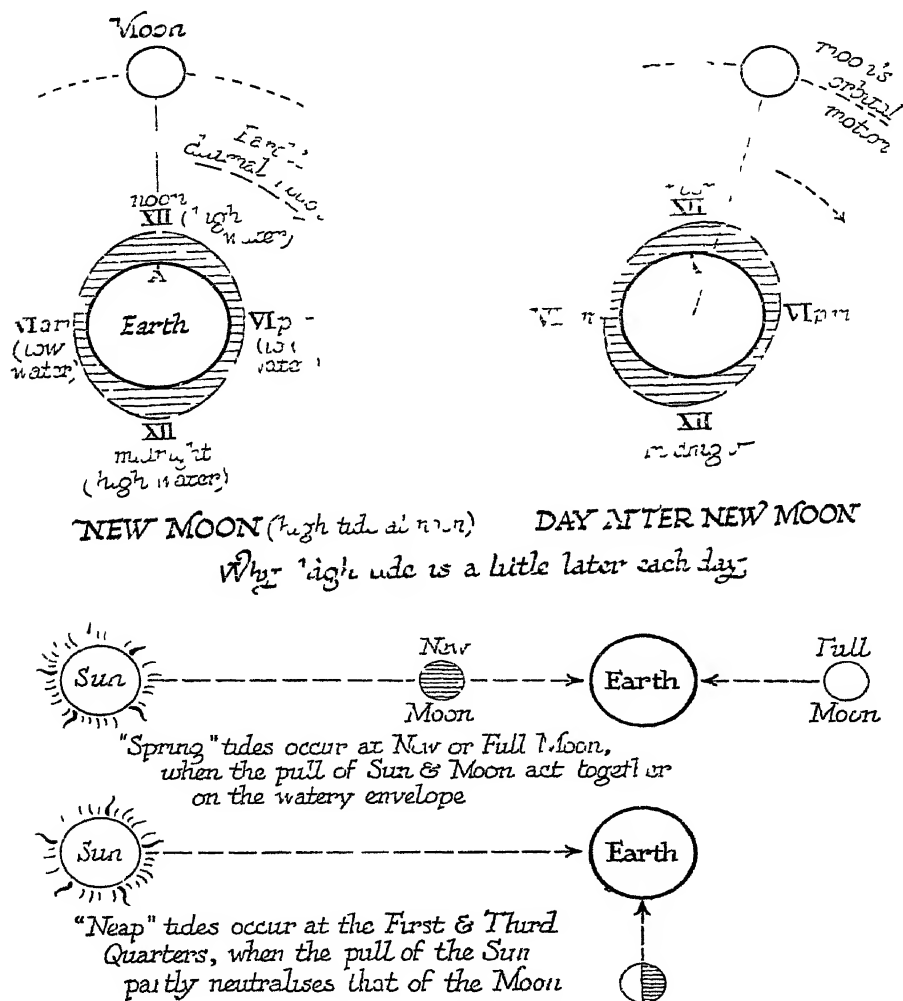 Moon
Earth's
diurnal
noon
XII (high
water)
A
Earth
VI am
(low
water)
VI p
(low
water)
XII
midnight
(high water)
NEW MOON (high tide at noon)
moon's
orbital
motion
XII
A
VI
VI pm
XII
midnight
DAY AFTER NEW MOON
Why high tide is a little later each day
Sun
New
Moon
Earth
Full
Moon
"Spring" tides occur at New or Full Moon,
when the pull of Sun & Moon act together
on the watery envelope
Sun
Earth
"Neap" tides occur at the First & Third
Quarters, when the pull of the Sun
partly neutralises that of the Moon